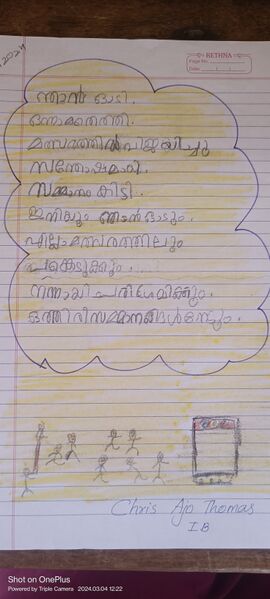 2024
RETHNA
Page No.
Date:
ഞാൻ ഓടി.
ഒന്നാമതെത്തി.
മത്സരത്തിൽ വിജയിച്ചു
സന്തോഷമായി.
സമ്മാനം കിട്ടി.
ഇനിയും ഞാൻ ഓടും.
എല്ലാ മത്സരത്തിലും
പങ്കെടുക്കും.
നന്നായി പരിശ്രമിക്കും.
ഒത്തിരി സമ്മാനങ്ങൾ നേടും.
Chris Ajo Thomas
I B
Shot on OnePlus
Powered by Triple Camera 2024.03.04 12:22